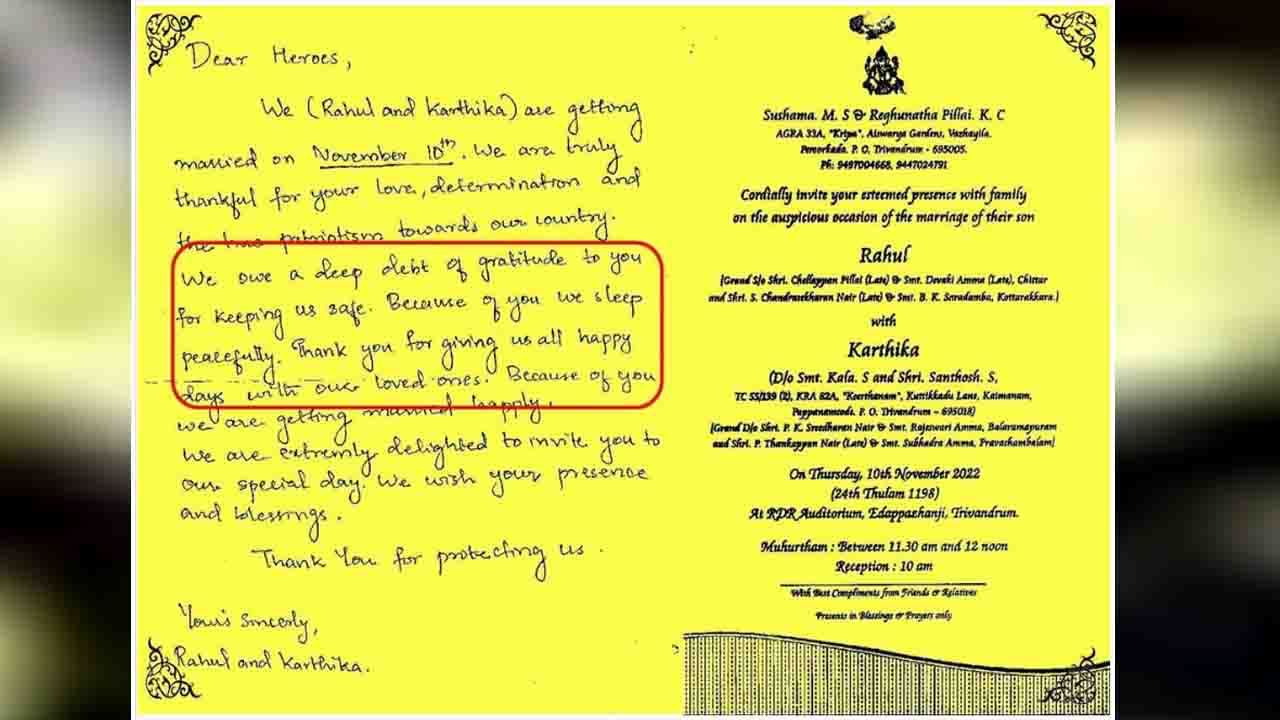 Dear Heroes,
We (Rahul and Karthika) are getting
married on November 10th. We are truly
thankful for your love, determination and
the true patriotism towards our country.
We owe a deep debt of gratitude to you
for keeping us safe. Because of you we sleep
peacefully. Thank you for giving us all happy
days with our loved ones. Because of you
we are getting married happly.
We are extremly delighted to invite you to
our special day. We wish your presence
and blessings.
Thank You for protecting us.
Your's sincerly,
Rahul and Karthika.
Sushama. M. S & Reghunatha Pillai. K. C
AGRA 33A, "Kripa", Aiswarya Gardens, Vazhayila.
Peroorkada. P. O, Trivandrum - 695005.
Ph: 9497004668, 9447024791
Cordially invite your esteemed presence with family
on the auspicious occasion of the marriage of their son
Rahul
[Grand S/o Shri. Chellappan Pillai (Late) & Smt. Devaki Amma (Late), Chittar
and Shri. S. Chandrasekharan Nair (Late) & Smt. B. K. Saradamba, Kottarakkara.]
with
Karthika
(D/o Smt. Kala. S and Shri. Santhosh. S,
TC 55/139 (2), KRA 82A, "Keerthanam", Kuttikkadu Lane, Kaimanam,
Pappanamcode. P. O. Trivandrum - 695018)
[Grand D/o Shri. P. K. Sreedharan Nair & Smt. Rajeswari Amma, Balaramapuram
and Shri. P. Thankappan Nair (Late) & Smt. Subhadra Amma, Pravachambalam]
On Thursday, 10th November 2022
(24th Thulam 1198)
At RDR Auditorium, Edappazhanji, Trivandrum.
Muhurtham : Between 11.30 am and 12 noon
Reception : 10 am
With Best Compliments from Friends & Relatives
Presents in Blessings & Prayers only